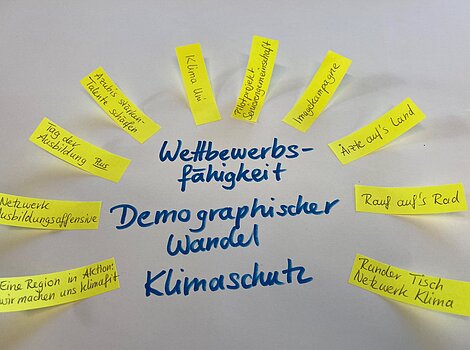 Eine Region in Aktion:
wir machen uns klimafit
Netzwerk
Ausbildungsoffensive
Tag der
Ausbildung
Azubis stärken-
Talente schöpfen
Klima Uni
Pilotprojekt
Seniorengemeinschaft
Imagekampagne
Ärzte auf's Land
Rauf auf's Rad
Runder Tisch
Netzwerk Klima
Wettbewerbs-
fähigkeit
Demographischer
Wandel
Klimaschutz